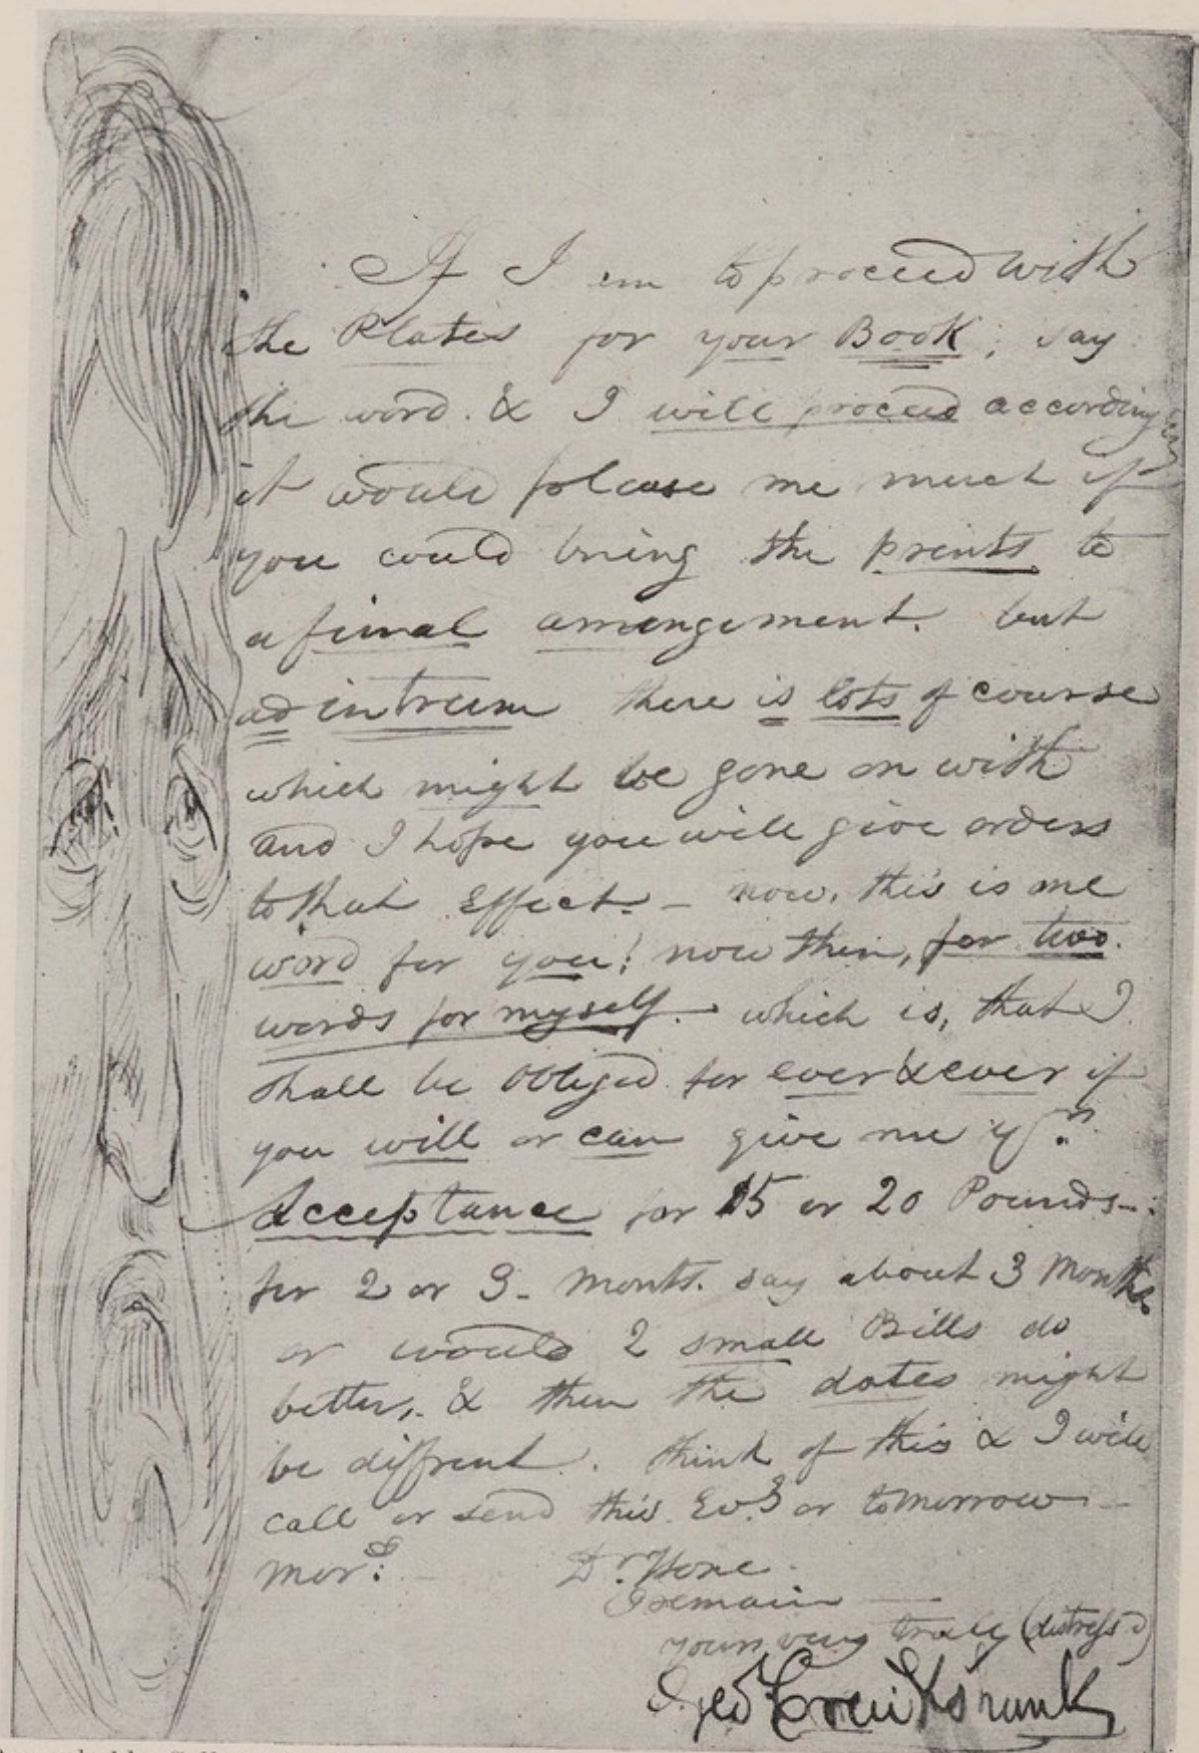 If I am to proceed with
the Plates for your Book; say
the word. & I will proceed accordingly
it would please me much if
you could bring the prints to
a final arrangement. but
ad intreum there is lots of course
which might be gone on with
and I hope you will give orders
to that Effect. – now, this is one
word for you! now then, for two
words for myself. – which is, that I
shall be obliged for ever & ever if
you will or can give me yr.
Acceptance for 15 or 20 Pounds –
for 2 or 3 – Months. say about 3 Months
or would 2 small Bills do
better, & then the dates might
be diffrent. think of this & I will
call or send this Evg or tomorrow –
morg:
Dr. Hone
I remain
yours very truly (distressd)
Geo Cruikshank